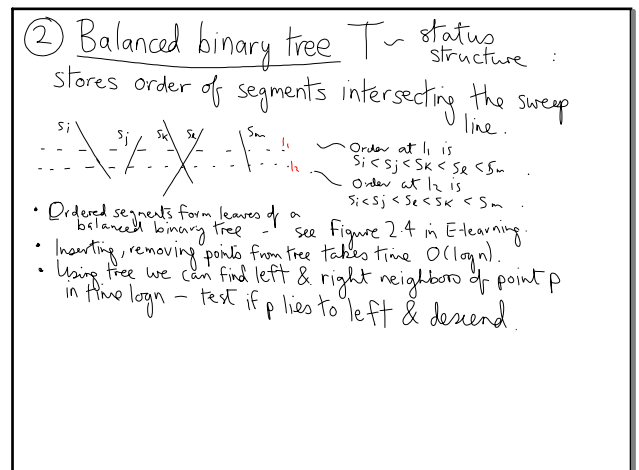 ② Balanced binary tree T ~ status
structure :
stores order of segments intersecting the sweep
line.
Si Sj Sk Se Sm l1
l2
Order at l1 is
Si < Sj < Sk < Se < Sm .
Order at l2 is
Si < Sj < Se < Sk < Sm .
• Ordered segments form leaves of a
balanced binary tree - see Figure 2.4 in E-learning.
• Inserting, removing points from tree takes time O(logn).
• Using tree we can find left & right neighbors of point p
in time logn – test if p lies to left & descend.